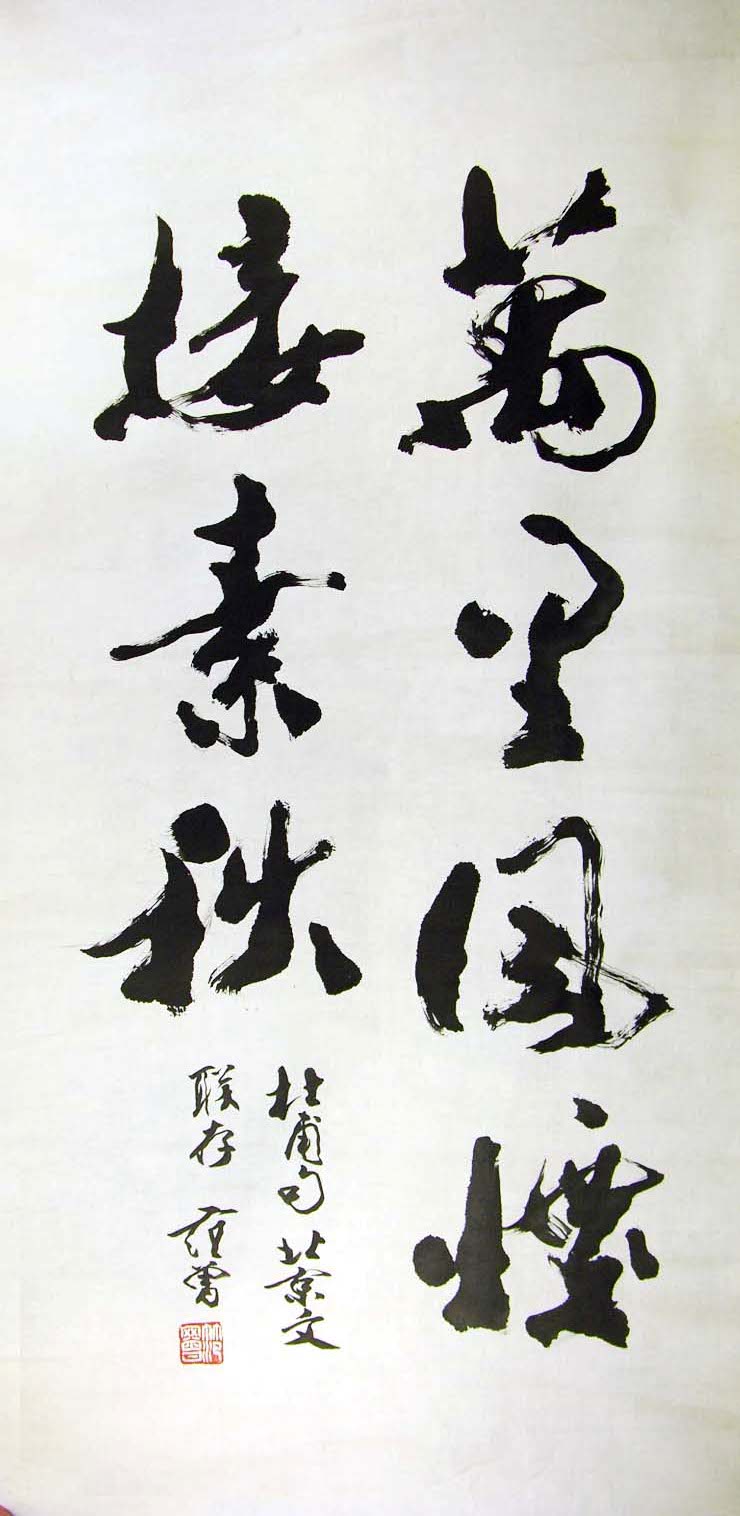 萬里風煙
接素秋
杜甫句 北京文
联存 范曾